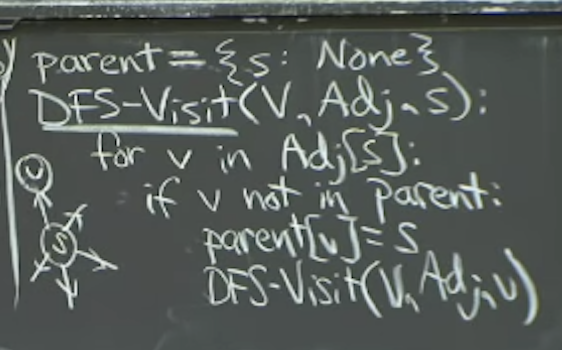 parent = {s: None}
DFS-Visit(V, Adj, s):
for v in Adj[s]:
if v not in parent:
parent[v] = s
DFS-Visit(V, Adj, v)
v
s